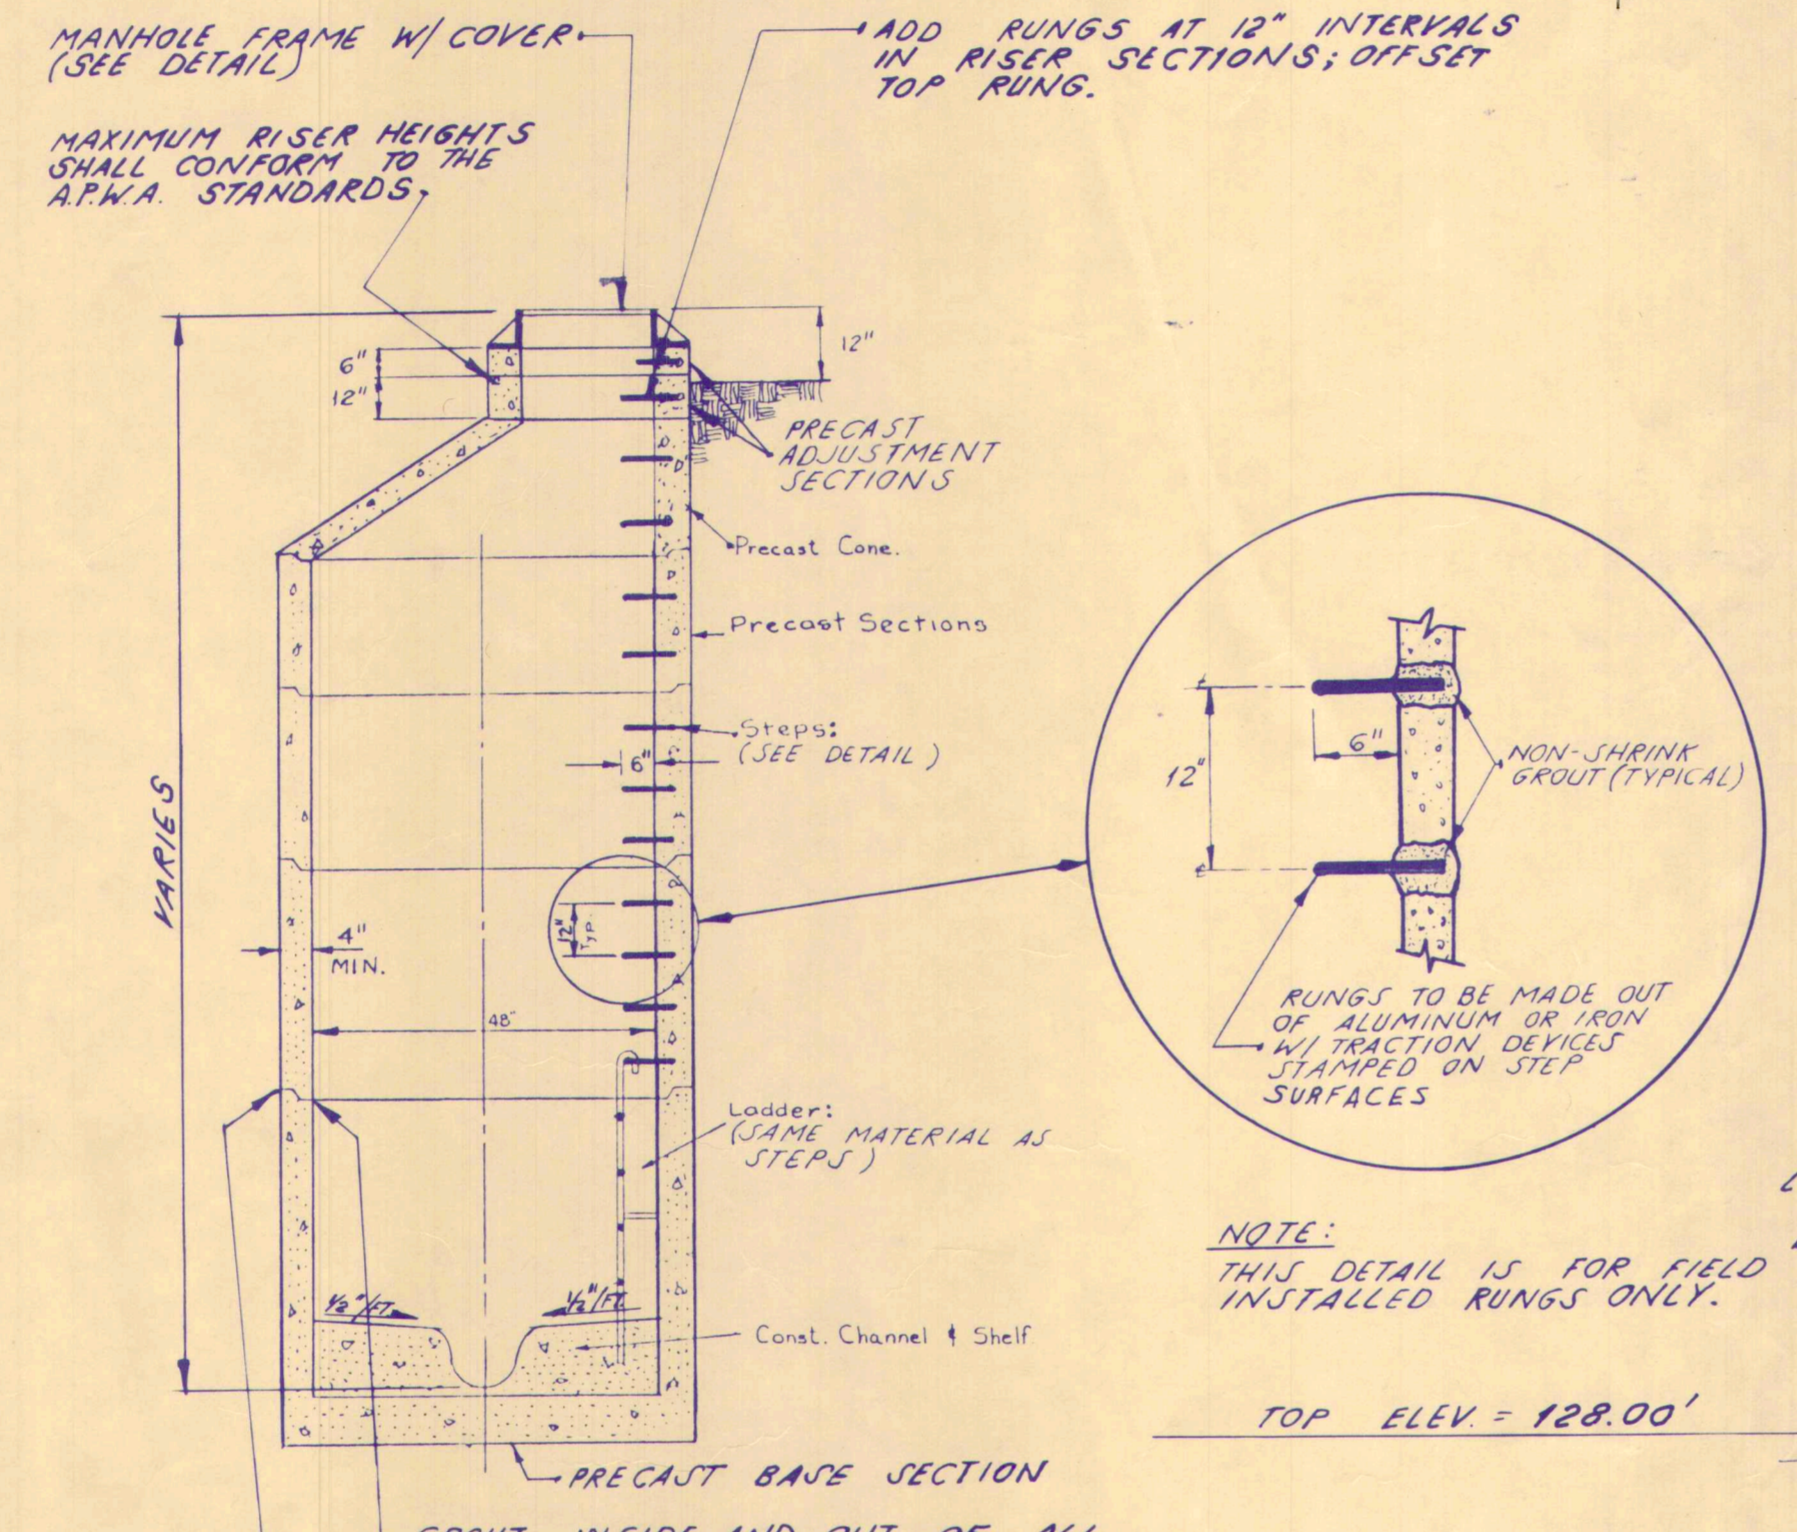 MANHOLE FRAME W/ COVER
(SEE DETAIL)
ADD RUNGS AT 12" INTERVALS
IN RISER SECTIONS; OFFSET
TOP RUNG.
MAXIMUM RISER HEIGHTS
SHALL CONFORM TO THE
A.P.W.A. STANDARDS
6"
12"
12"
PRECAST
ADJUSTMENT
SECTIONS
Precast Cone.
Precast Sections
Steps:
(SEE DETAIL)
6"
VARIES
12"
TYP
4"
MIN.
48"
Ladder:
(SAME MATERIAL AS
STEPS)
1/2"/FT.
1/2"/FT.
Const. Channel & Shelf
PRECAST BASE SECTION
GROUT INSIDE AND OUT OF ALL
6"
12"
NON-SHRINK
GROUT (TYPICAL)
RUNGS TO BE MADE OUT
OF ALUMINUM OR IRON
W/ TRACTION DEVICES
STAMPED ON STEP
SURFACES
NOTE:
THIS DETAIL IS FOR FIELD
INSTALLED RUNGS ONLY.
TOP ELEV. = 128.00'